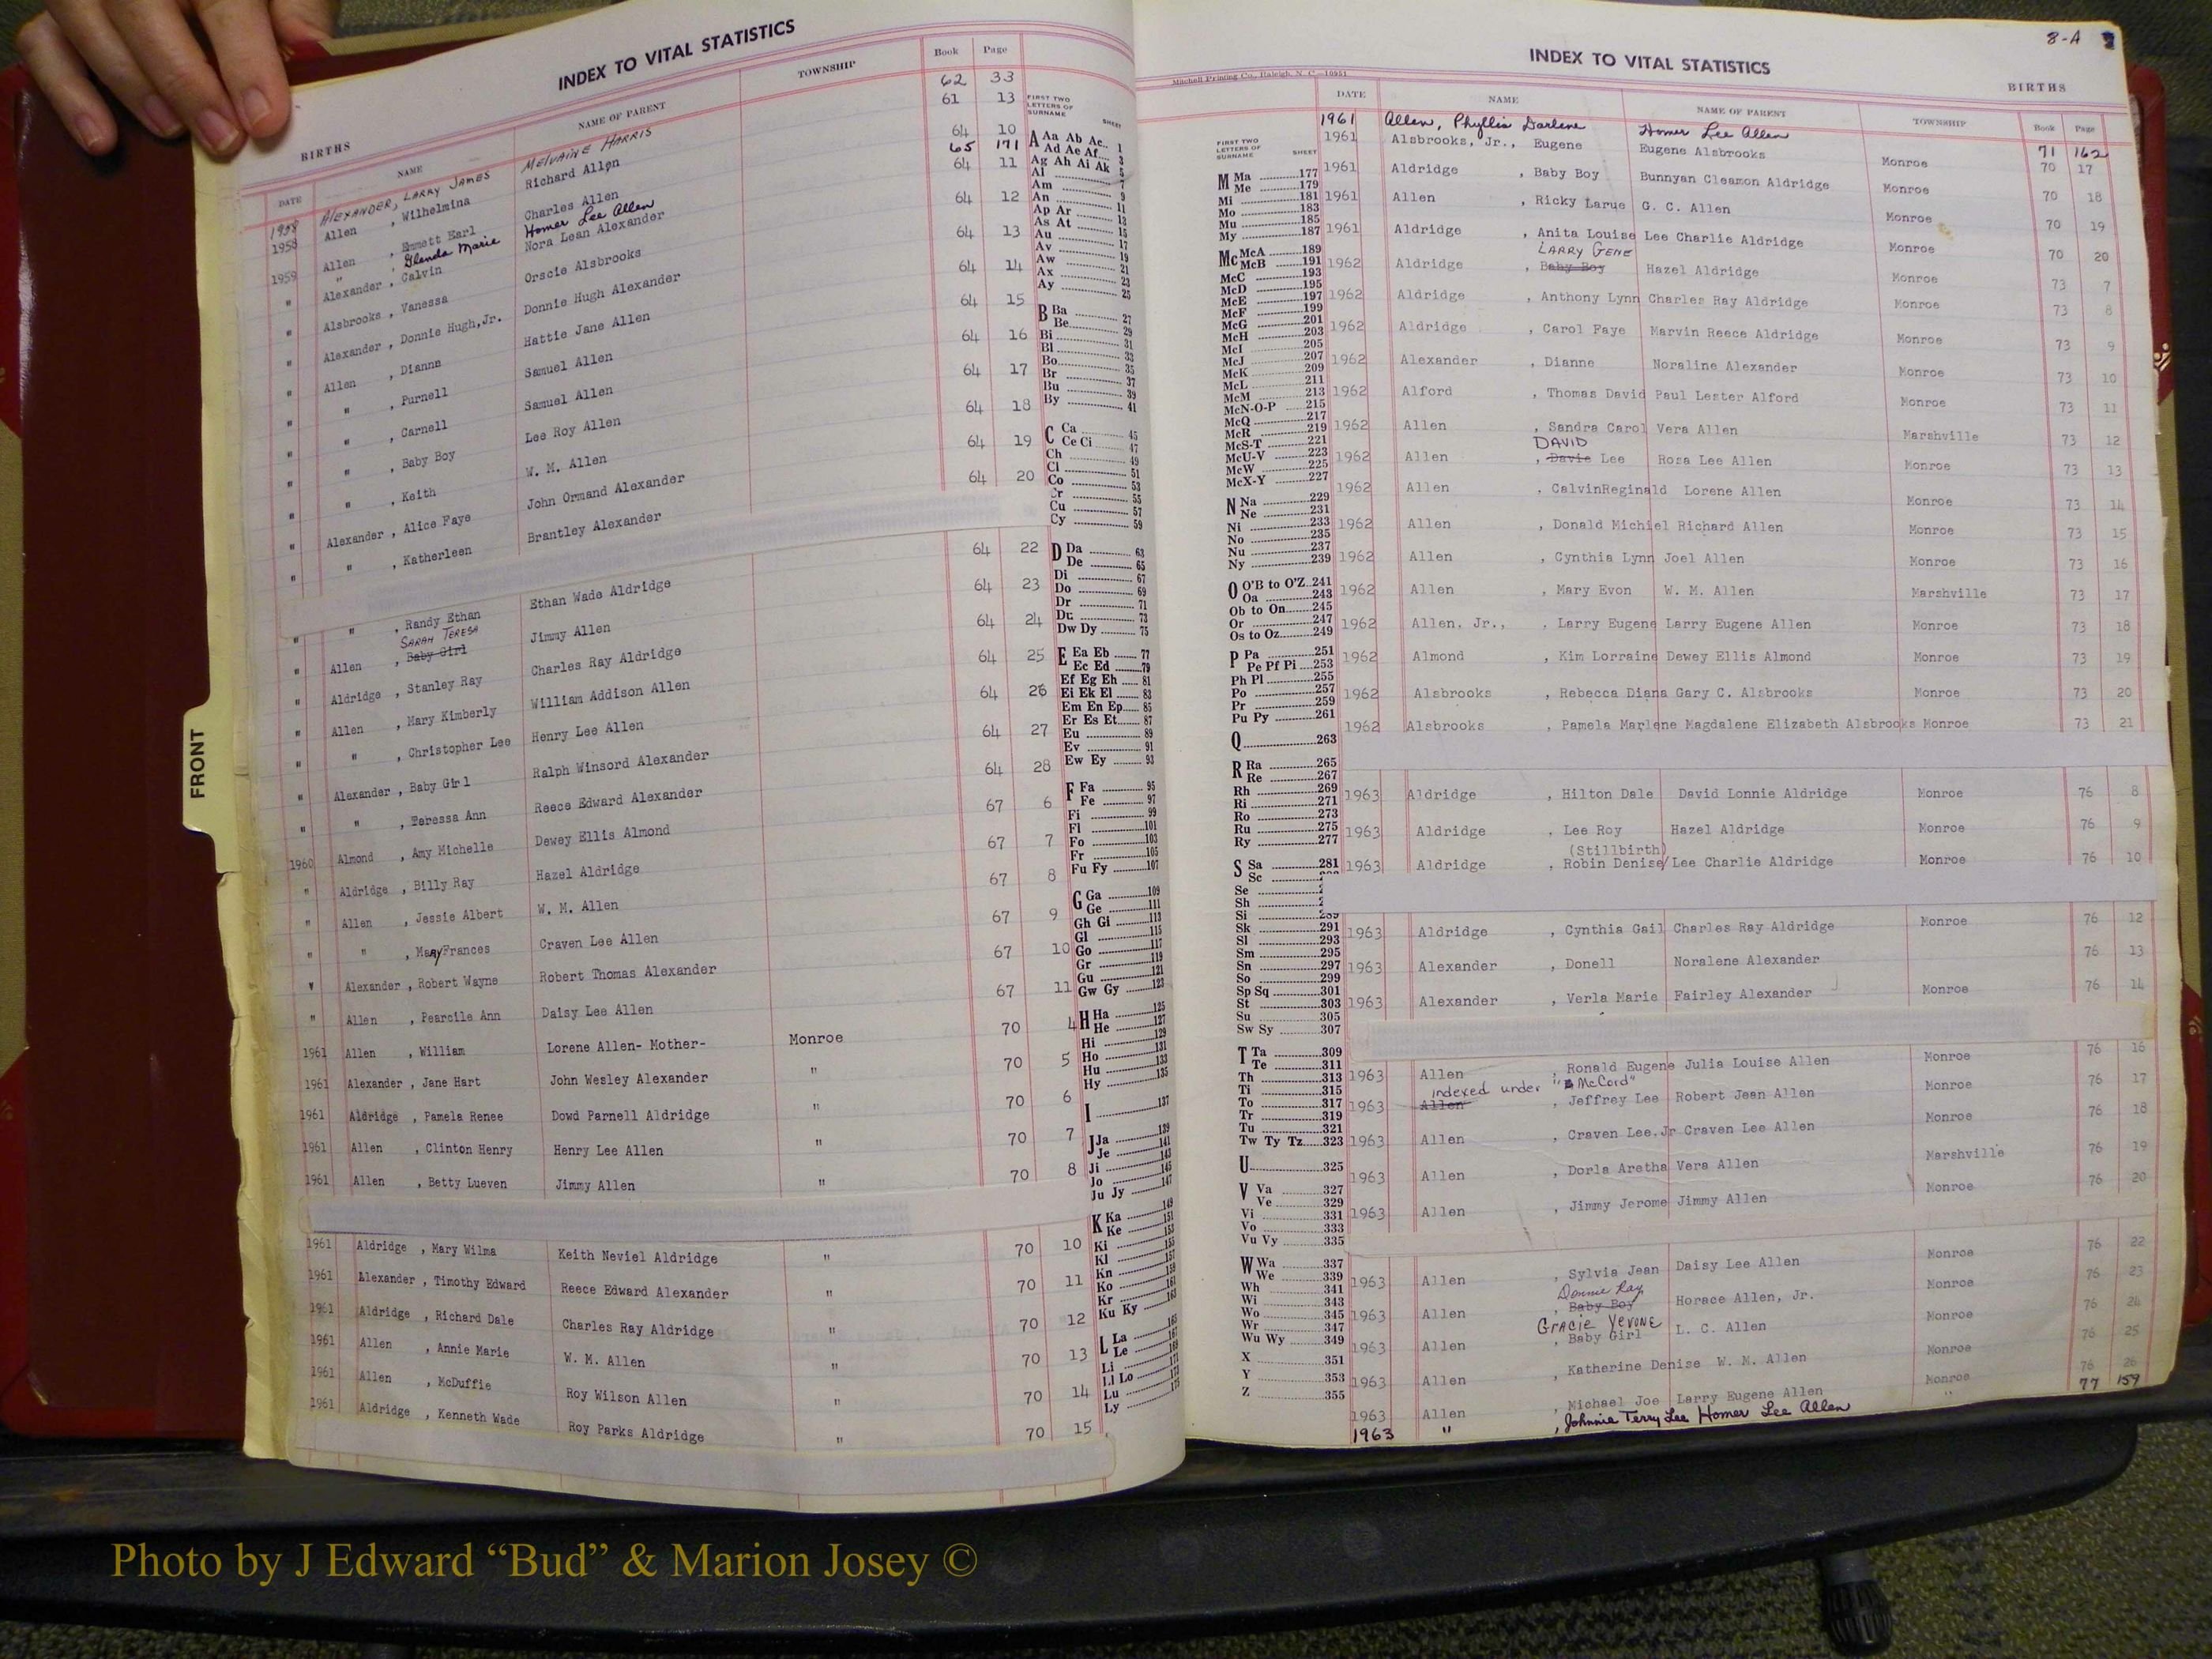 INDEX TO VITAL STATISTICS
BIRTHS
DATE NAME NAME OF PARENT TOWNSHIP Book Page
1958 ALEXANDER, LARRY JAMES MELVAINE HARRIS 62 33
1958 Allen , Wilhelmina Richard Allen 61 13
1959 Allen , Emmett Earl Charles Allen 64 10
" ' Glenda Marie Homer Lee Allen 65 171
" Alexander , Calvin Nora Lean Alexander 64 11
" Alsbrooks , Vanessa Orscie Alsbrooks 64 12
" Alexander , Donnie Hugh, Jr. Donnie Hugh Alexander 64 13
" Allen , Dianna Hattie Jane Allen 64 14
" " , Purnell Samuel Allen 64 15
" " , Carnell Samuel Allen 64 16
" " , Baby Boy Lee Roy Allen 64 17
" " , Keith W. M. Allen 64 18
" Alexander , Alice Faye John Ormand Alexander 64 19
" " , Katherleen Brantley Alexander 64 20
" " , Randy Ethan Ethan Wade Aldridge 64 22
SARAH TERESA
" Allen , Baby Girl Jimmy Allen 64 23
" Aldridge , Stanley Ray Charles Ray Aldridge 64 24
" Allen , Mary Kimberly William Addison Allen 64 25
" " , Christopher Lee Henry Lee Allen 64 26
" Alexander , Baby Girl Ralph Winsord Alexander 64 27
" " , Teressa Ann Reece Edward Alexander 64 28
1960 Almond , Amy Michelle Dewey Ellis Almond 67 6
" Aldridge , Billy Ray Hazel Aldridge 67 7
" Allen , Jessie Albert W. M. Allen 67 8
" " , Mary Frances Craven Lee Allen 67 9
" Alexander , Robert Wayne Robert Thomas Alexander 67 10
" Allen , Pearcile Ann Daisy Lee Allen 67 11
1961 Allen , William Lorene Allen- Mother- Monroe 70 4
1961 Alexander , Jane Hart John Wesley Alexander " 70 5
1961 Aldridge , Pamela Renee Dowd Parnell Aldridge " 70 6
1961 Allen , Clinton Henry Henry Lee Allen " 70 7
1961 Allen , Betty Lueven Jimmy Allen " 70 8
1961 Aldridge , Mary Wilma Keith Neviel Aldridge " 70 10
1961 Alexander , Timothy Edward Reece Edward Alexander " 70 11
1961 Aldridge , Richard Dale Charles Ray Aldridge " 70 12
1961 Allen , Annie Marie W. M. Allen " 70 13
1961 Allen , McDuffie Roy Wilson Allen " 70 14
1961 Aldridge , Kenneth Wade Roy Parks Aldridge " 70 15
FRONT
FIRST TWO
LETTERS OF
SURNAME SHEET
A Aa Ab Ac.. 1
Ad Ae Af.... 3
Ag Ah Ai Ak 5
Al 7
Am 9
An 11
Ap Ar 13
As At 15
Au 17
Av 19
Aw 21
Ax 23
Ay 25
B Ba 27
Be 29
Bi 31
Bl 33
Bo 35
Br 37
Bu 39
By 41
C Ca 45
Ce Ci 47
Ch 49
Cl 51
Co 53
Cr 55
Cu 57
Cy 59
D Da 63
De 65
Di 67
Do 69
Dr 71
Du 73
Dw Dy 75
E Ea Eb 77
Ec Ed 79
Ef Eg Eh 81
Ei Ek El 83
Em En Ep 85
Er Es Et 87
Eu 89
Ev 91
Ew Ey 93
F Fa 95
Fe 97
Fi 99
Fl 101
Fo 103
Fr 105
Fu Fy 107
G Ga 109
Ge 111
Gh Gi 113
Gl 115
Go 117
Gr 119
Gu 121
Gw Gy 123
H Ha 125
He 127
Hi 129
Ho 131
Hu 133
Hy 135
I 137
J Ja 139
Je 141
Ji 143
Jo 145
Ju Jy 147
K Ka 149
Ke 151
Ki 155
Kl 157
Kn 159
Ko 161
Kr
Ku Ky 163
L La 165
Le 167
Li
Ll Lo
Lu
Ly
8-A
INDEX TO VITAL STATISTICS
Mitchell Printing Co., Raleigh, N. C.—10951
BIRTHS
DATE NAME NAME OF PARENT TOWNSHIP Book Page
1961 Allen, Phyllis Darlene Homer Lee Allen 71 162
1961 Alsbrooks, Jr., Eugene Eugene Alsbrooks Monroe 70 17
1961 Aldridge , Baby Boy Bunnyan Cleamon Aldridge Monroe 70 18
1961 Allen , Ricky Larue G. C. Allen Monroe 70 19
1961 Aldridge , Anita Louise Lee Charlie Aldridge Monroe 70 20
LARRY GENE
1962 Aldridge , Baby Boy Hazel Aldridge Monroe 73 7
1962 Aldridge , Anthony Lynn Charles Ray Aldridge Monroe 73 8
1962 Aldridge , Carol Faye Marvin Reece Aldridge Monroe 73 9
1962 Alexander , Dianne Noraline Alexander Monroe 73 10
1962 Alford , Thomas David Paul Lester Alford Monroe 73 11
1962 Allen , Sandra Carol Vera Allen Marshville 73 12
DAVID
1962 Allen , Davie Lee Rosa Lee Allen Monroe 73 13
1962 Allen , CalvinReginald Lorene Allen Monroe 73 14
1962 Allen , Donald Michiel Richard Allen Monroe 73 15
1962 Allen , Cynthia Lynn Joel Allen Monroe 73 16
1962 Allen , Mary Evon W. M. Allen Marshville 73 17
1962 Allen, Jr., , Larry Eugene Larry Eugene Allen Monroe 73 18
1962 Almond , Kim Lorraine Dewey Ellis Almond Monroe 73 19
1962 Alsbrooks , Rebecca Diana Gary C. Alsbrooks Monroe 73 20
1962 Alsbrooks , Pamela Marlene Magdalene Elizabeth Alsbrooks Monroe 73 21
1963 Aldridge , Hilton Dale David Lonnie Aldridge Monroe 76 8
1963 Aldridge , Lee Roy Hazel Aldridge Monroe 76 9
(Stillbirth)
1963 Aldridge , Robin Denise/Lee Charlie Aldridge Monroe 76 10
1963 Aldridge , Cynthia Gail Charles Ray Aldridge Monroe 76 12
1963 Alexander , Donell Noralene Alexander 76 13
1963 Alexander , Verla Marie Fairley Alexander Monroe 76 14
1963 Allen , Ronald Eugene Julia Louise Allen Monroe 76 16
indexed under "McCord"
1963 Allen , Jeffrey Lee Robert Jean Allen Monroe 76 17
1963 Allen , Craven Lee, Jr Craven Lee Allen Monroe 76 18
1963 Allen , Dorla Aretha Vera Allen Marshville 76 19
1963 Allen , Jimmy Jerome Jimmy Allen Monroe 76 20
1963 Allen , Sylvia Jean Daisy Lee Allen Monroe 76 22
Donnie Ray
1963 Allen , Baby Boy Horace Allen, Jr. Monroe 76 23
GRACIE YEVONE
1963 Allen , Baby Girl L. C. Allen Monroe 76 24
1963 Allen , Katherine Denise W. M. Allen Monroe 76 25
1963 Allen , Michael Joe Larry Eugene Allen Monroe 76 26
1963 " , Johnnie Terry Lee Homer Lee Allen " 77 159
FIRST TWO
LETTERS OF
SURNAME SHEET
M Ma 177
Me 179
Mi 181
Mo 183
Mu 185
My 187
Mc McA 189
McB 191
McC 193
McD 195
McE 197
McF 199
McG 201
McH 203
McI 205
McJ 207
McK 209
McL 211
McM 213
McN-O-P 215
McQ 217
McR 219
McS-T 221
McU-V 223
McW 225
McX-Y 227
N Na 229
Ne 231
Ni 233
No 235
Nu 237
Ny 239
O O'B to O'Z 241
Oa 243
Ob to On 245
Or 247
Os to Oz 249
P Pa 251
Pe Pf Pi 253
Ph Pl 255
Po 257
Pr 259
Pu Py 261
Q 263
R Ra 265
Re 267
Rh 269
Ri 271
Ro 273
Ru 275
Ry 277
S Sa 281
Sc
Se
Sh
Si 289
Sk 291
Sl 293
Sm 295
Sn 297
So 299
Sp Sq 301
St 303
Su 305
Sw Sy 307
T Ta 309
Te 311
Th 313
Ti 315
To 317
Tr 319
Tu 321
Tw Ty Tz 323
U 325
V Va 327
Ve 329
Vi 331
Vo 333
Vu Vy 335
W Wa 337
We 339
Wh 341
Wi 343
Wo 345
Wr 347
Wu Wy 349
X 351
Y 353
Z 355
Photo by J Edward “Bud” & Marion Josey ©